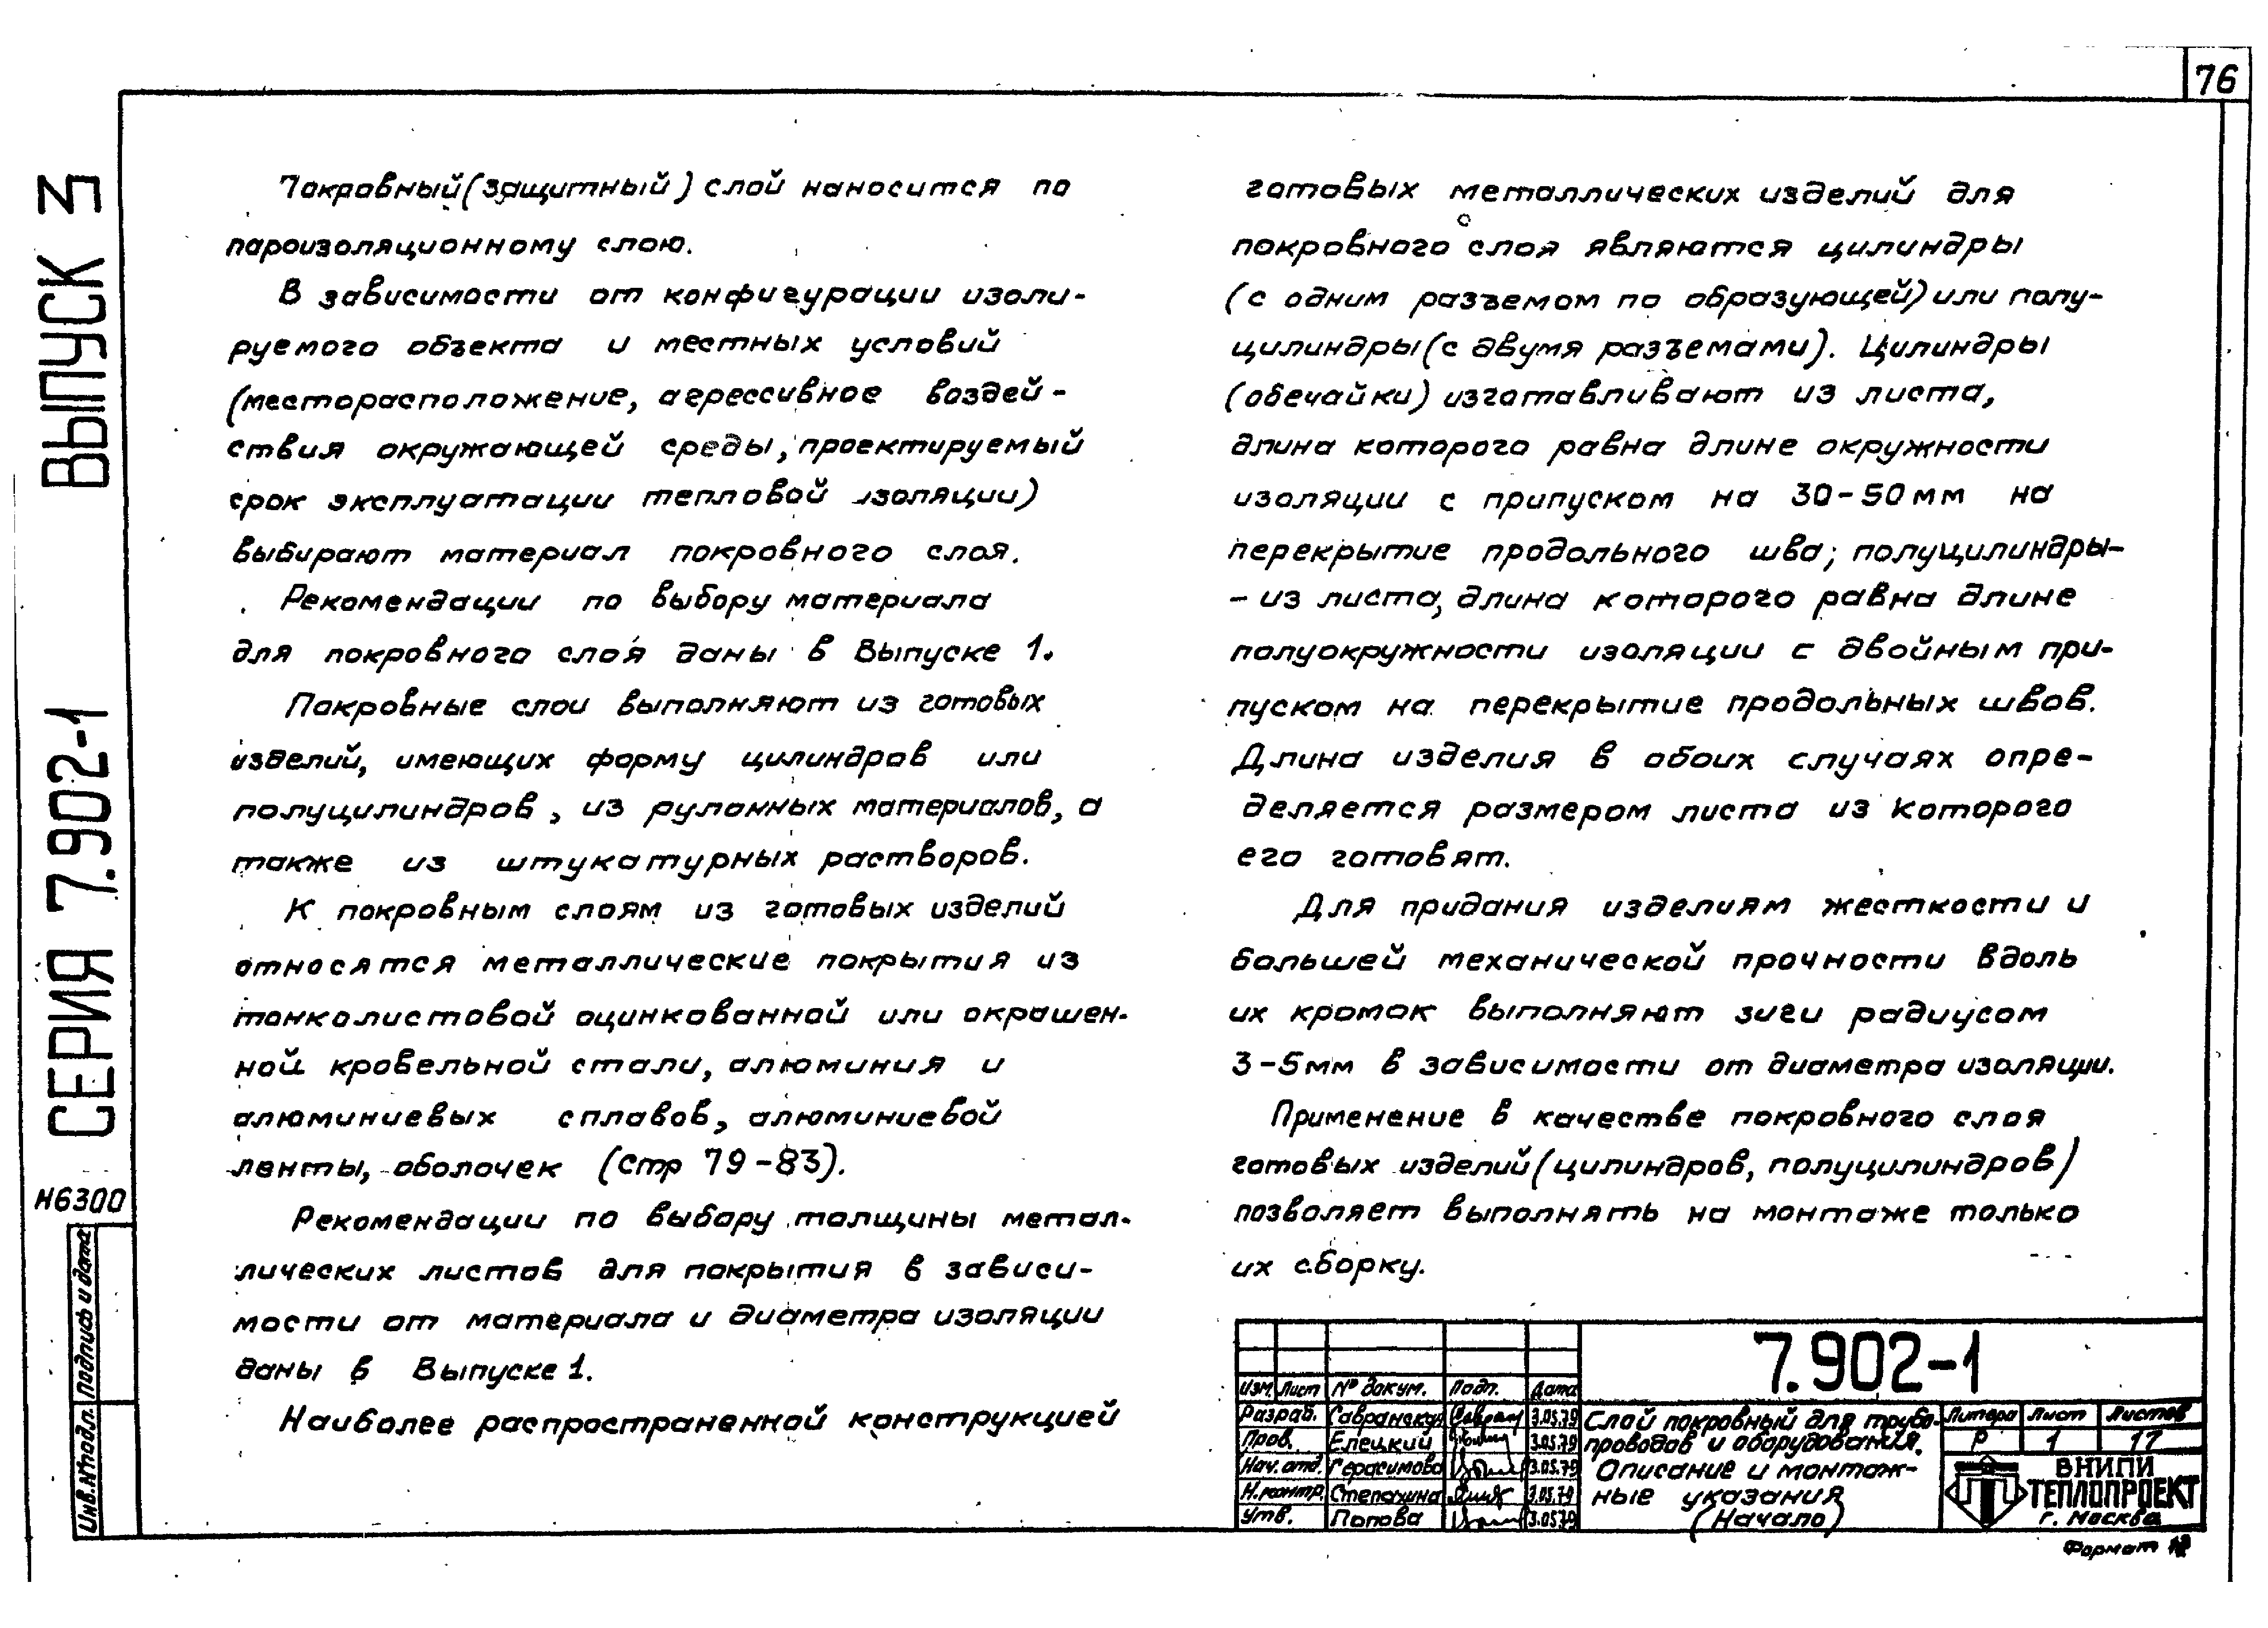 76
Покровный (защитный) слой наносится по
пароизоляционному слою.
В зависимости от конфигурации изоли-
руемого объекта и местных условий
(месторасположение, агрессивное воздей-
ствия окружающей среды, проектируемый
срок эксплуатации тепловой изоляции)
выбирают материал покровного слоя.
Рекомендации по выбору материала
для покровного слоя даны в Выпуске 1.
Покровные слои выполняют из готовых
изделий, имеющих форму цилиндров или
полуцилиндров, из рулонных материалов, а
также из штукатурных растворов.
К покровным слоям из готовых изделий
относятся металлические покрытия из
тонколистовой оцинкованной или окрашен-
ной кровельной стали, алюминия и
алюминиевых сплавов, алюминиевой
ленты, оболочек (стр 79-83).
Рекомендации по выбору толщины метал-
лических листов для покрытия в зависи-
мости от материала и диаметра изоляции
даны в Выпуске 1.
Наиболее распространенной конструкцией
готовых металлических изделий для
покровного слоя являются цилиндры
(с одним разъемом по образующей) или полу-
цилиндры (с двумя разъемами). Цилиндры
(обечайки) изготавливают из листа,
длина которого равна длине окружности
изоляции с припуском на 30-50 мм на
перекрытие продольного шва; полуцилиндры-
- из листа, длина которого равна длине
полуокружности изоляции с двойным при-
пуском на перекрытие продольных швов.
Длина изделия в обоих случаях опре-
деляется размером листа из которого
его готовят.
Для придания изделиям жесткости и
большей механической прочности вдоль
их кромок выполняют зиги радиусом
3-5 мм в зависимости от диаметра изоляции.
Применение в качестве покровного слоя
готовых изделий (цилиндров, полуцилиндров)
позволяет выполнять на монтаже только
их сборку.
СЕРИЯ 7.902-1 ВЫПУСК 3
Н6300
Инв.№подл. Подпись и дата
7.902-1
Изм. Лист № докум. Подп. Дата
Разраб. Савранская 3.05.79
Пров. Елецкий 3.05.79
Нач. отд. Герасимова 3.05.79
Н.контр. Степахина 3.05.79
Утв. Попова 3.05.79
Слой покровный для трубо-
проводов и оборудования.
Описание и монтаж-
ные указания
(Начало)
Литера Лист Листов
Р 1 17
ВНИПИ
ТЕПЛОПРОЕКТ
г. Москва
Формат